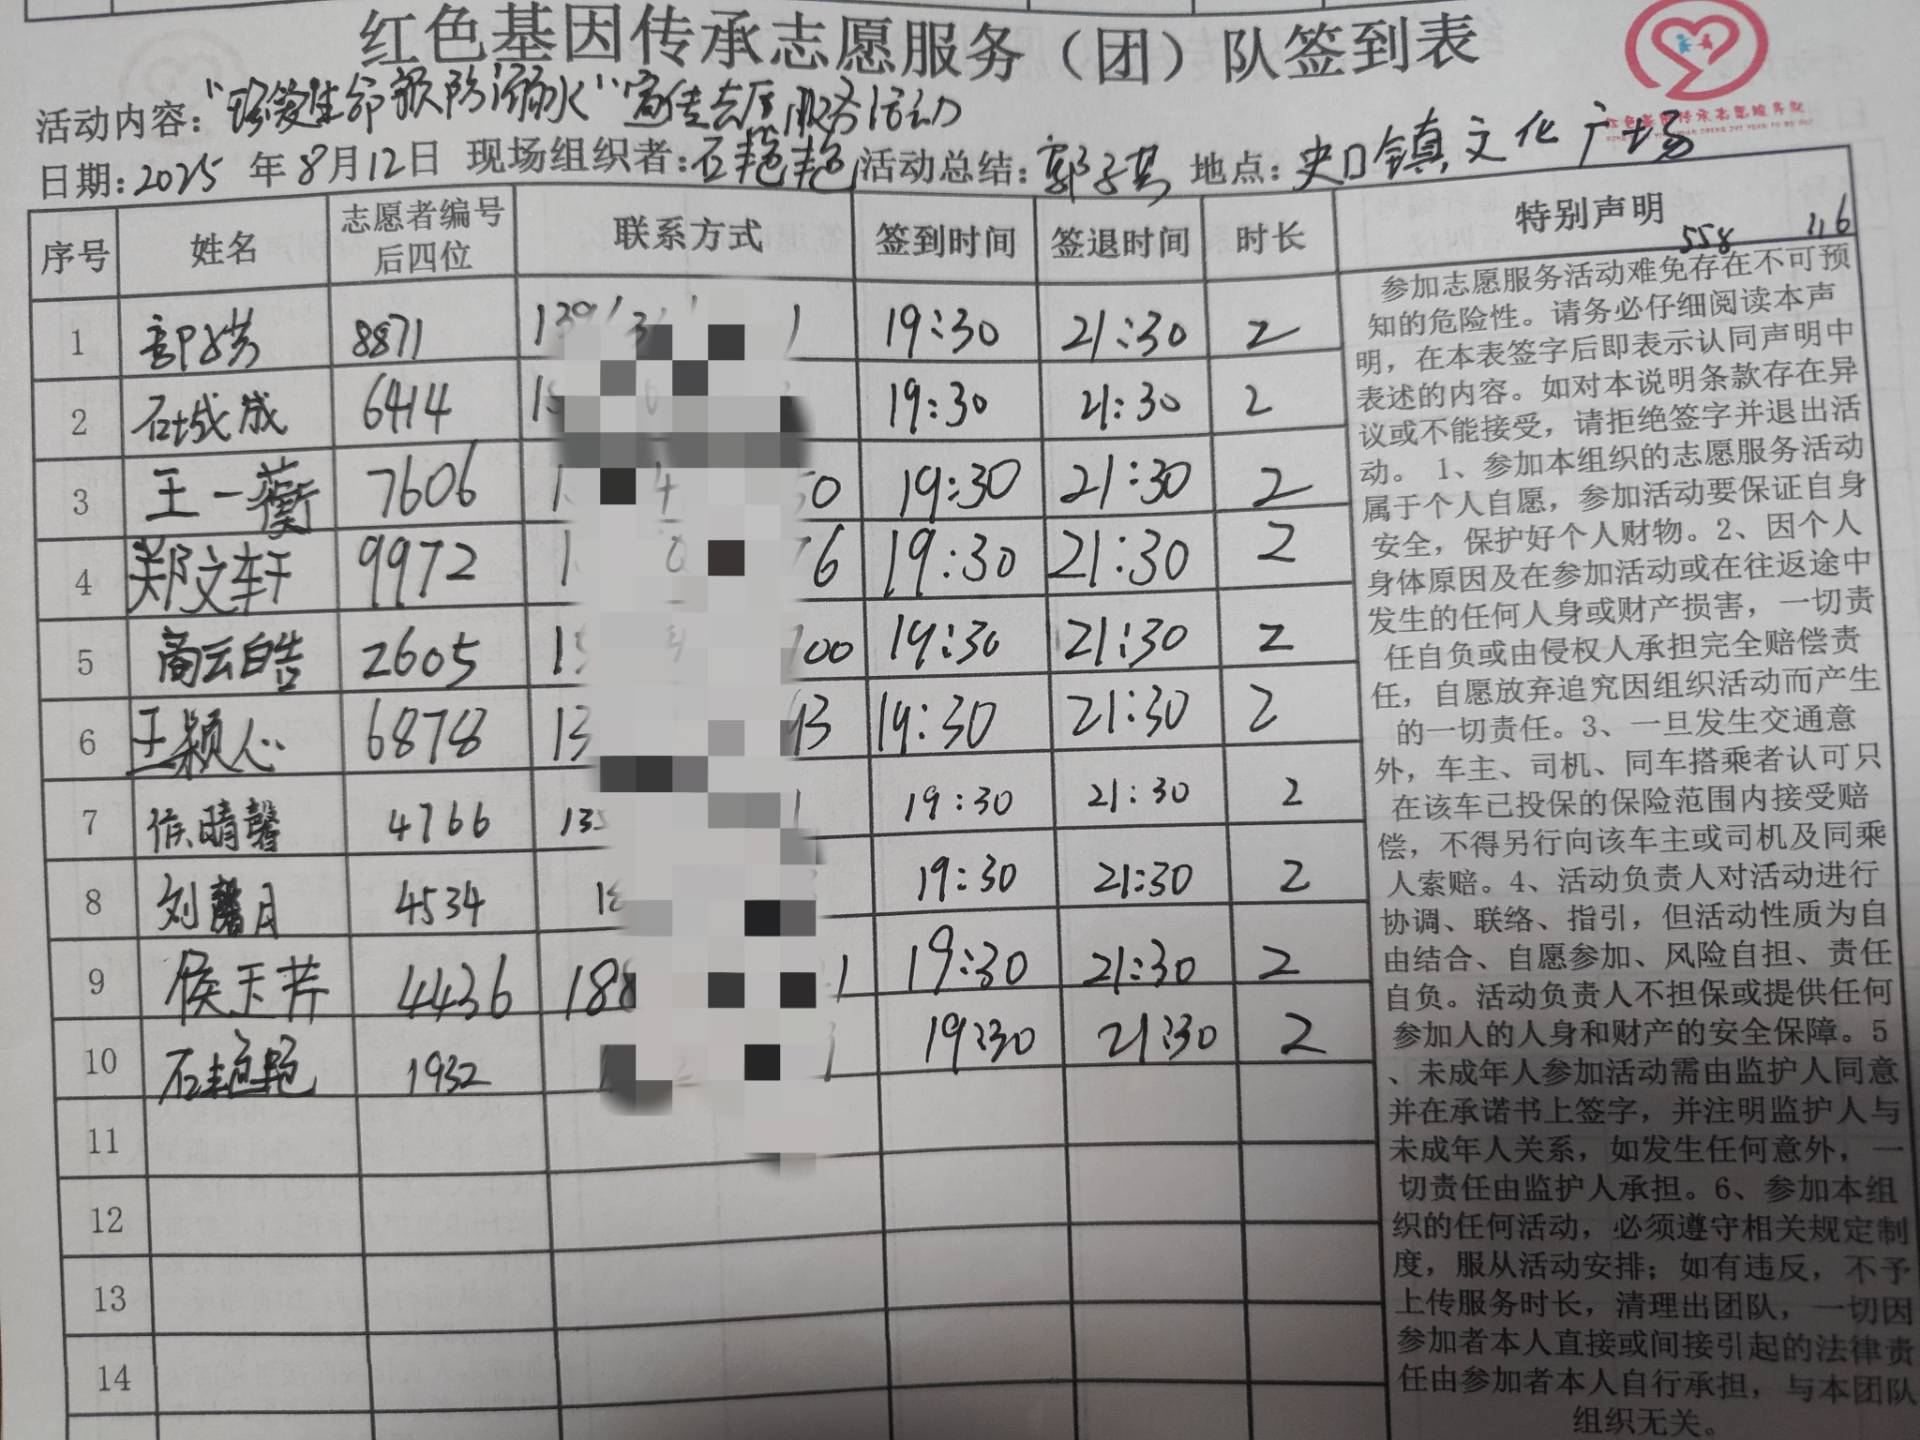 红色基因传承志愿服务（团）队签到表
活动内容：“珍爱生命预防溺水”宣传志愿服务活动
日期：2025年8月12日 现场组织者：石艳艳 活动总结：郭子其 地点：史口镇文化广场
序号 姓名 志愿者编号后四位 联系方式 签到时间 签退时间 时长 特别声明
558 116
1 8871 19:30 21:30 2
2 石城成 6414 19:30 21:30 2
3 王一蘅 7606 19:30 21:30 2
4 郑文轩 9972 19:30 21:30 2
5 商云皓 2605 19:30 21:30 2
6 王颖心 6878 19:30 21:30 2
7 侯晴馨 4766 19:30 21:30 2
8 刘馨月 4534 19:30 21:30 2
9 侯玉芹 4436 188 19:30 21:30 2
10 石艳艳 1932 19:30 21:30 2
11
12
13
14
参加志愿服务活动难免存在不可预
知的危险性。请务必仔细阅读本声
明，在本表签字后即表示认同声明中
表述的内容。如对本说明条款存在异
议或不能接受，请拒绝签字并退出活
动。 1、参加本组织的志愿服务活动
属于个人自愿，参加活动要保证自身
安全，保护好个人财物。2、因个人
身体原因及在参加活动或在往返途中
发生的任何人身或财产损害，一切责
任自负或由侵权人承担完全赔偿责
任，自愿放弃追究因组织活动而产生
的一切责任。3、一旦发生交通意
外，车主、司机、同车搭乘者认可只
在该车已投保的保险范围内接受赔
偿，不得另行向该车主或司机及同乘
人索赔。4、活动负责人对活动进行
协调、联络、指引，但活动性质为自
由结合、自愿参加、风险自担、责任
自负。活动负责人不担保或提供任何
参加人的人身和财产的安全保障。5
、未成年人参加活动需由监护人同意
并在承诺书上签字，并注明监护人与
未成年人关系，如发生任何意外，一
切责任由监护人承担。6、参加本组
织的任何活动，必须遵守相关规定制
度，服从活动安排；如有违反，不予
上传服务时长，清理出团队，一切因
参加者本人直接或间接引起的法律责
任由参加者本人自行承担，与本团队
组织无关。